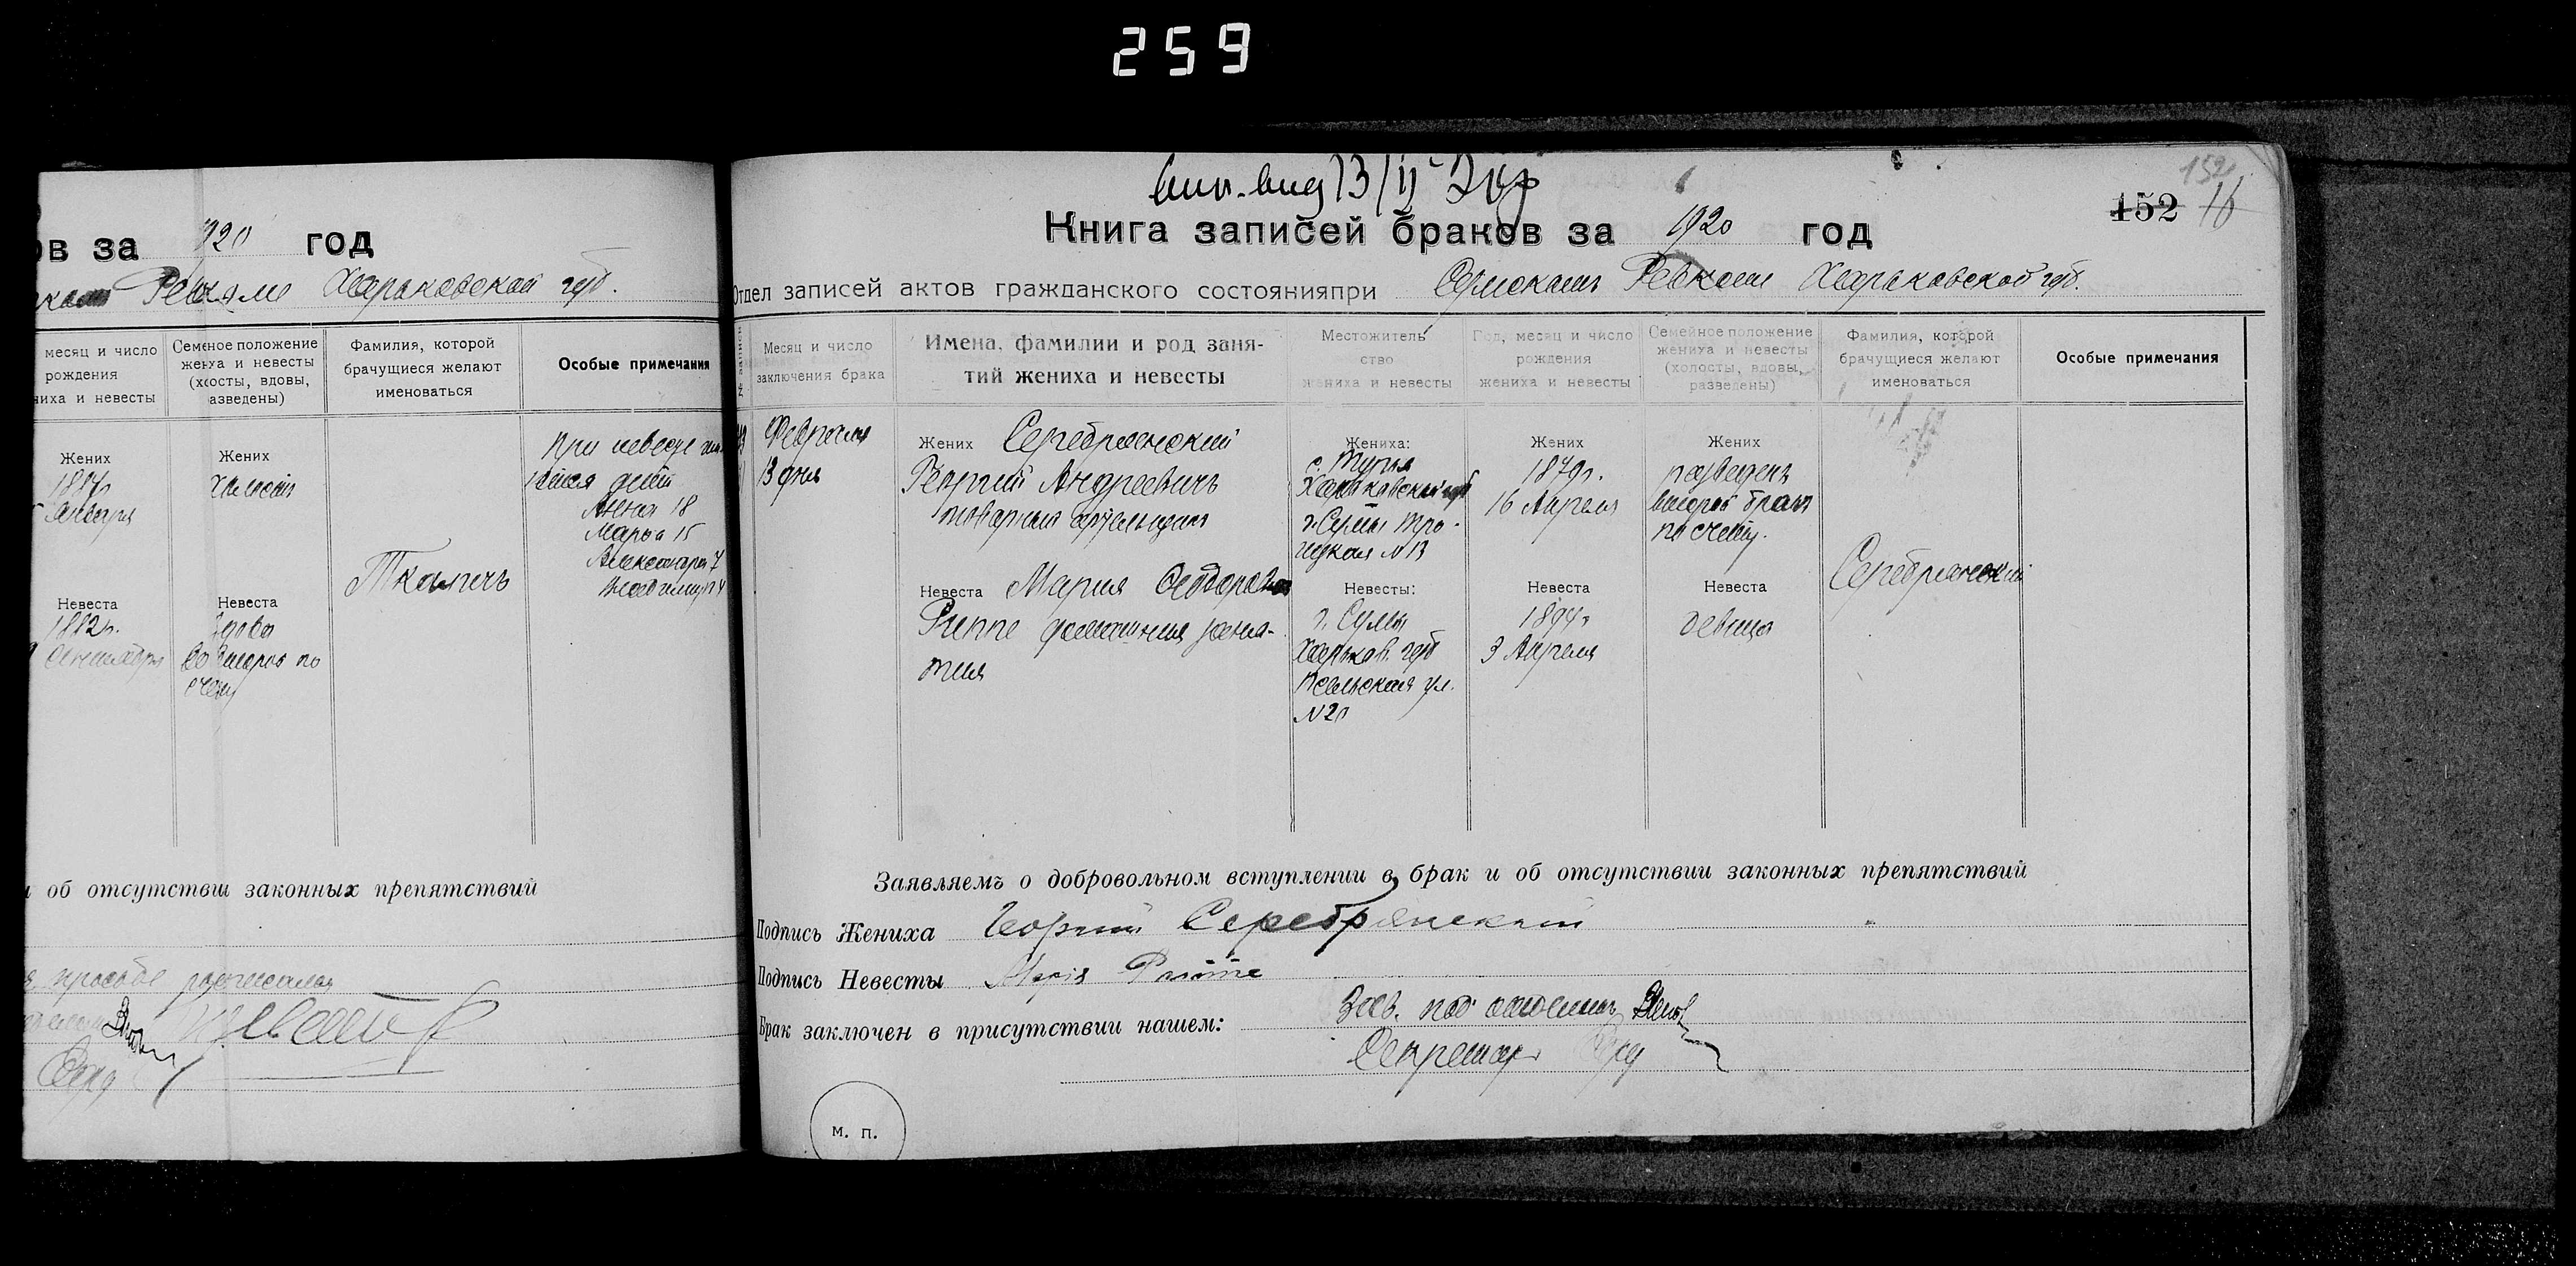 259
ов за 1920 год
Ревкоме Харьковской губ.
месяц и число
рождения
ниха и невесты
Семеное положение
жениха и невесты
(холосты, вдовы,
азведены)
Фамилия, которой
брачущиеся желают
именоваться
Особые примечания
Жених
1887г.
Января
Жених
холост
При невесте
дети
Анна 18
Марья 15
Александра 7
Владимир 4
Ткачъ
Невеста
1882г.
Сентября
Невеста
вдова
во второй по
счету
и об отсутствии законных препятствий
просьбе расписался
вып. вид 13/II 20г
152
152 16
Книга записей браков за 1920 год
Отдел записей актов гражданского состоянияпри Сумскомъ Ревкоме Харьковской губ.
№ записи
Месяц и число
заключения брака
Имена, фамилии и род заня-
тий жениха и невесты
Местожитель
ство
жениха и невесты
Год, месяц и число
рождения
жениха и невесты
Семейное положение
жениха и невесты
(холосты, вдовы,
разведены)
Фамилия, которой
брачущиеся желают
именоваться
Особые примечания
Февраля
13 дня
Жених Серебрянский
Георгий Андреевичъ
товарный артельщик
Жениха:
с.
Харьковской губ
г. Сумы Тро-
ицкая N 13
Жених
1879г.
16 Апреля
Жених
разведенъ
второй брак
по счету.
Невеста Мария Федоровна
Риппе домашния заня-
тия
Невесты:
г. Сумы
Харьков. губ
Псельская ул.
N 20
Невеста
1894г
3 Апреля
Невеста
девица
Серебрянский
Заявляемъ о добровольном вступлении в брак и об отсутствии законных препятствий
Подпись Жениха Георгий Серебрянский
Подпись Невесты Марія
Брак заключен в присутствии нашем: Зав. под отделомъ
Секретарь
м. п.